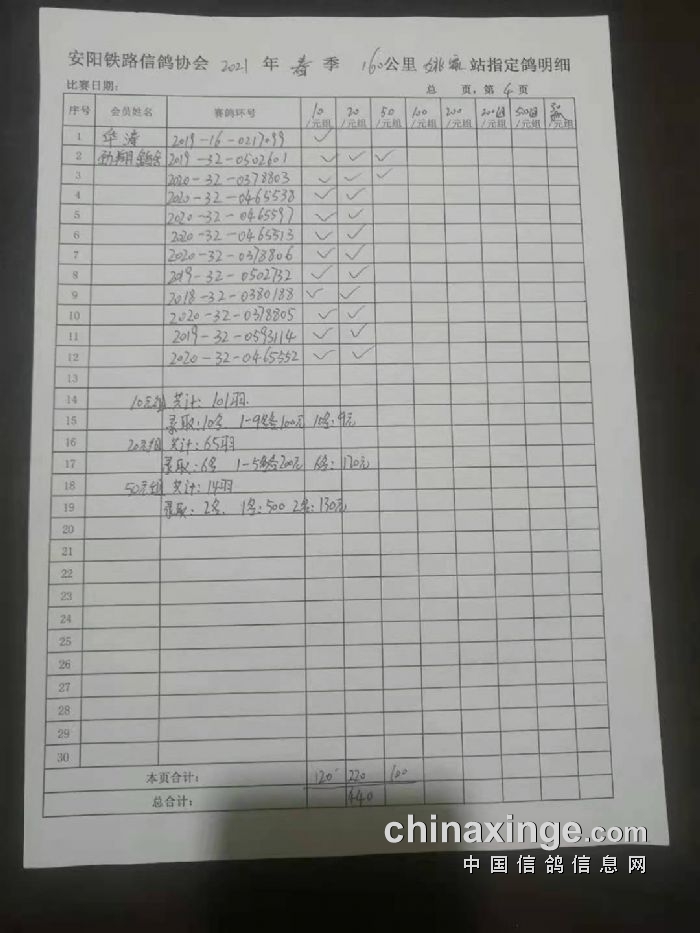 安阳铁路信鸽协会 2021 年 春 季 160公里 站指定鸽明细
比赛日期: 总 页,第 4 页
序号 会员姓名 赛鸽环号 10/元组 20/元组 50/元组 100/元组 200/元组 200组/元组 500组/元组 /元组
1 华涛 2019-16-0217099 ✓
2 2019-32-0502601 ✓ ✓ ✓
3 2020-32-0378803 ✓ ✓ ✓
4 2020-32-0465538 ✓ ✓
5 2020-32-0465597 ✓ ✓
6 2020-32-0465513 ✓ ✓
7 2020-32-0378806 ✓ ✓
8 2019-32-0502732 ✓ ✓
9 2018-32-0380188 ✓ ✓
10 2020-32-0378805 ✓ ✓
11 2019-32-0593114 ✓ ✓
12 2020-32-0465552 ✓ ✓
13
14 10元组 共计:101羽.
15 录取:10名 1-9名各100元 10名:9元
16 20元组 共计:65羽
17 录取:6名 1-5名各200元 6名:170元
18 50元组 共计:14羽
19 录取:2名, 1名:500 2名:130元
20
21
22
23
24
25
26
27
28
29
30
本页合计: 120 220 100
总合计: 440
chinaxinge.com
中国信鸽信息网